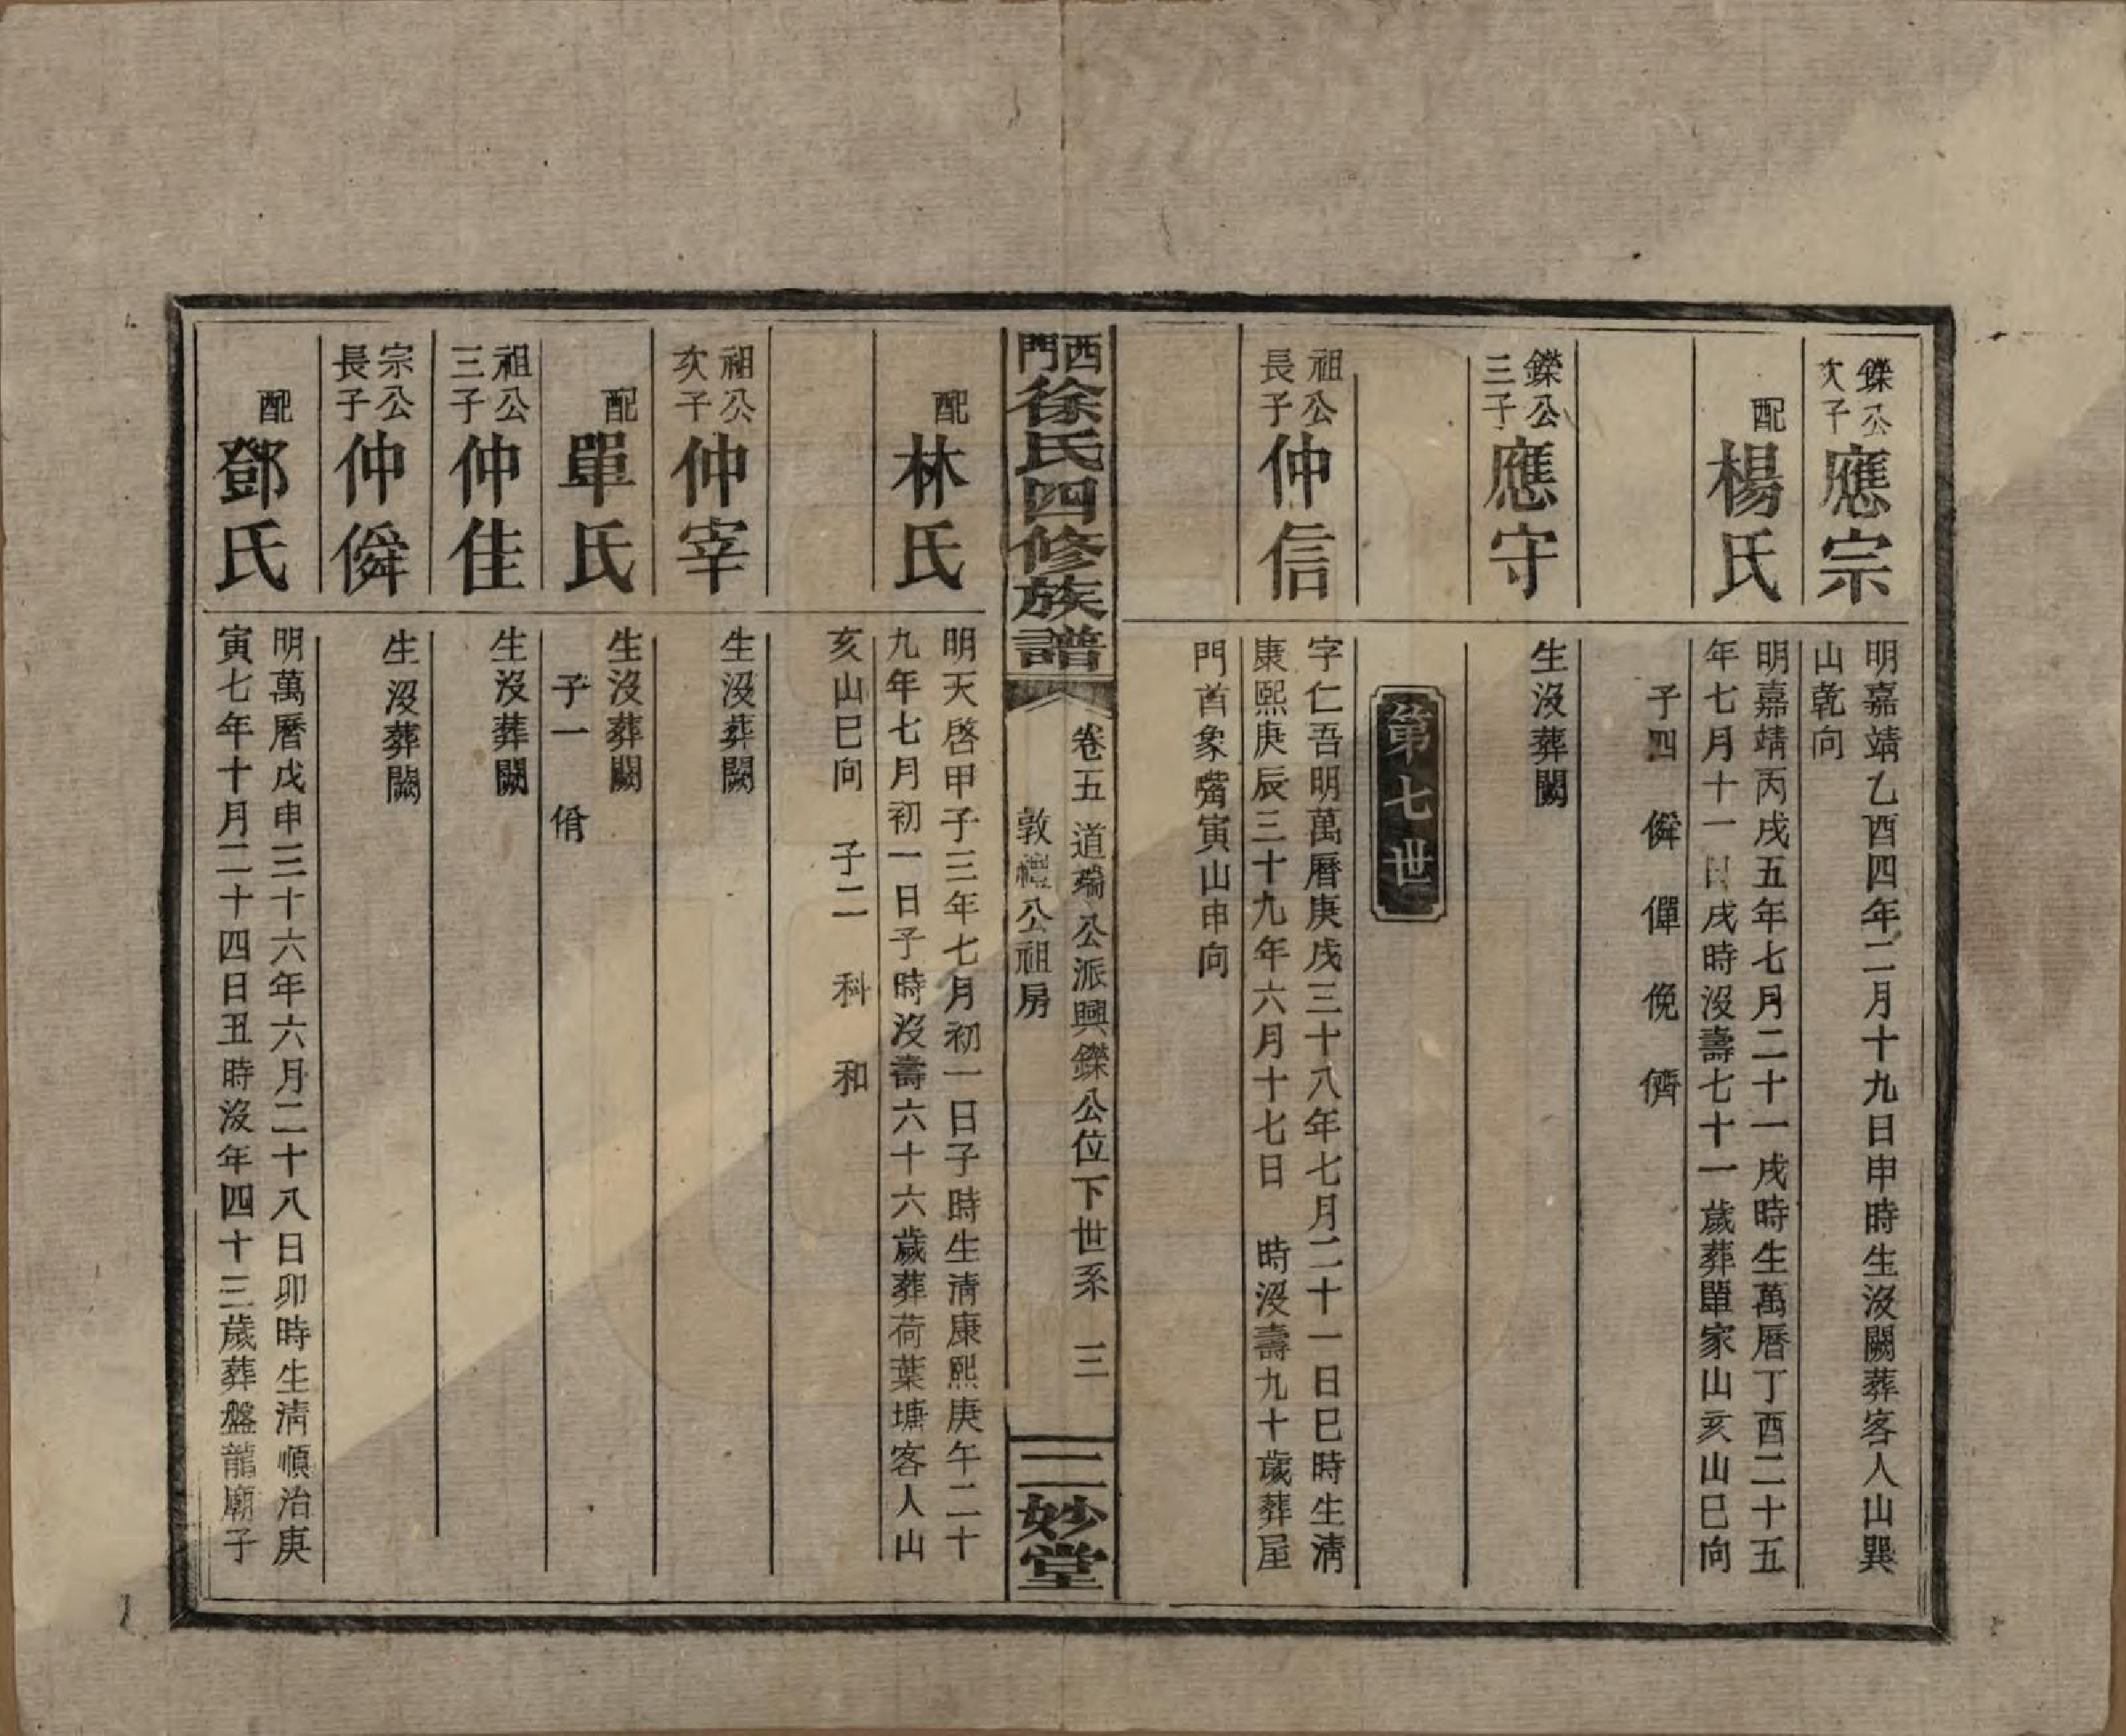 鑠公次子
應宗
明嘉靖乙酉四年二月十九日申時生沒闕葬客人山巽
山乾向
配
楊氏
明嘉靖丙戌五年七月二十一戌時生萬曆丁酉二十五
年七月十一日戌時沒壽七十一歲葬單家山亥山巳向
子四 僢 僤 俛 儕
鑠公三子
應守
生沒葬闕
第七世
祖公長子
仲信
字仁吾明萬曆庚戌三十八年七月二十一日巳時生淸
康熙庚辰三十九年六月十七日 時沒壽九十歲葬屋
門首象嘴寅山申向
西門徐氏四修族譜
卷五 道端公派興鑠公位下世系 三
敦禮公祖房
二妙堂
配
林氏
明天啓甲子三年七月初一日子時生淸康熙庚午二十
九年七月初一日子時沒壽六十六歲葬荷葉塘客人山
亥山巳向 子二 科 和
祖公次子
仲宰
生沒葬闕
配
單氏
生沒葬闕
子一 㑾
祖公三子
仲佳
生沒葬闕
宗公長子
仲僢
生沒葬闕
配
鄧氏
明萬曆戊申三十六年六月二十八日卯時生淸順治庚
寅七年十月二十四日丑時沒年四十三歲葬盤龍廟子